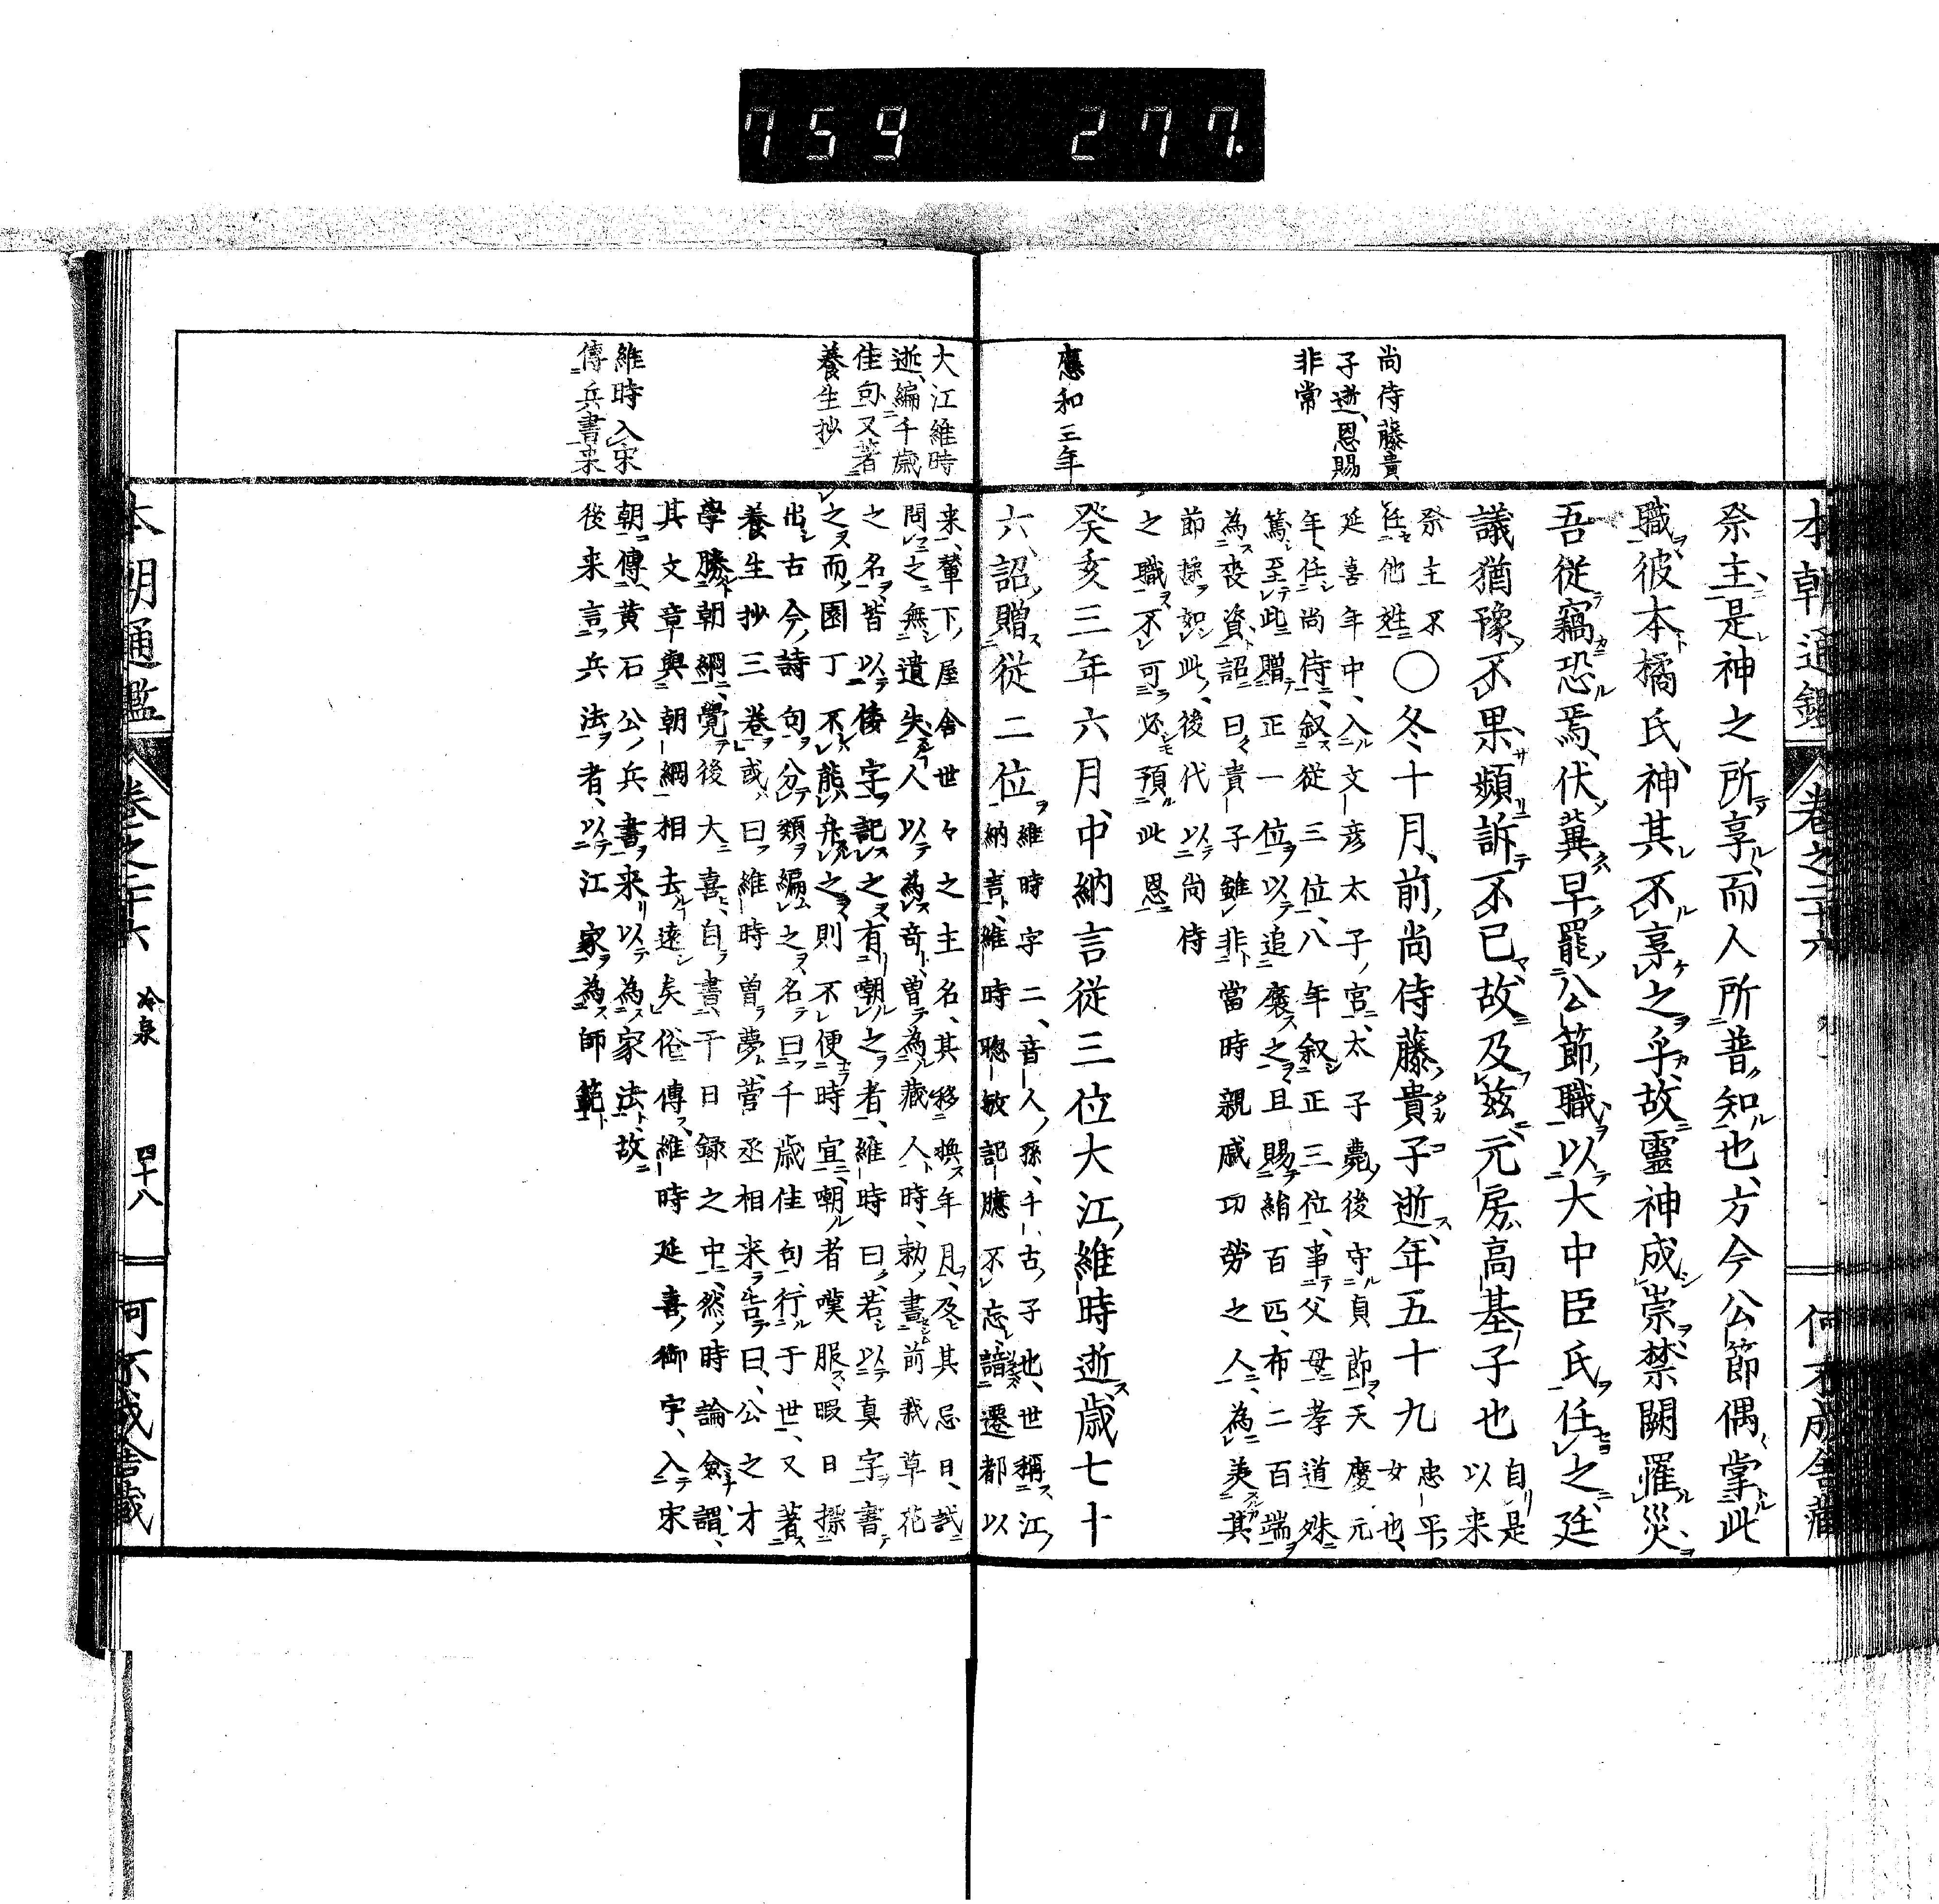 759 277.
本朝通鑑 卷之二十六
何不成舎蔵
尚侍藤貴
子逝、恩賜
非常
應和三年
祭主、是神之所享而人所普知也、方今公節偶掌此
職、彼本橘氏、神其不享之乎、故靈神成崇、禁闕罹災、
吾從竊恐焉、伏冀早罷公節職、以大中臣氏任之、廷
議猶豫、不果、頻訴不已、故及兹、元房高基子也自是
以来
祭主不
任他姓〇冬、十月、前尚侍藤貴子逝、年五十九忠平
女也、
延喜年中、入文彦太子宮、太子薨後守貞節、天慶元
年、任尚侍、叙從三位、八年叙正三位、事父母孝道殊
篤、至此贈正一位、以追褒之、且賜絹百匹、布二百端
為喪資、詔曰、貴子雖非當時親戚功勞之人、為美其
節操如此、後代以尚侍
之職不可必預此恩
癸亥三年六月、中納言從三位大江維時逝、歳七十
六、詔贈從二位、維時字二、音人孫、千古子也、世稱江
納言、維時聰敏記臆不忘、諳遷都以
大江維時
逝、編千歳
佳句又著
養生抄
維時入宋
傳兵書来
来、輦下屋舎世々之主名、其移換年月、及其忌日、試
問之、無遺失、人以為奇、曽為藏人時、勅書前栽草花
之名、皆以倭字記之、有嘲之者、維時曰、若以真字書
之、而園丁不能弁之、則不便時宜、嘲者嘆服、暇日採
出古今詩句、分類編之、名曰千歳佳句、行于世、又著
養生抄三卷、或曰、維時曽夢、菅丞相来告曰、公之才
學勝朝綱、覺後大喜、自書于日録之中、然時論僉謂、
其文章與朝綱相去遠矣、俗傳、維時延喜御宇、入宋
朝傳黄石公兵書来、以為家法、故
後来言兵法者、以江家為師範
本朝通鑑 卷之二十六 冷泉 四十八
何不成舎蔵